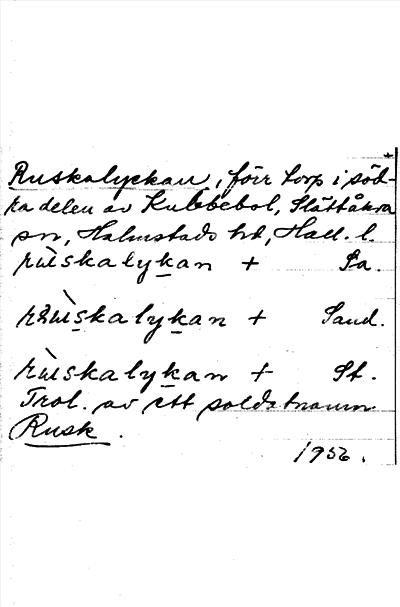 Ruskalyckan, förr torp i söd-
ra delen av Kubbebol, Slättåkra
sn, Halmstads hd, Hall. l.
rùskalykan + Sa.
rùskalykan + Sand.
rùskalykan + St.
Trol. av ett soldatnamn
Rusk.
1956.